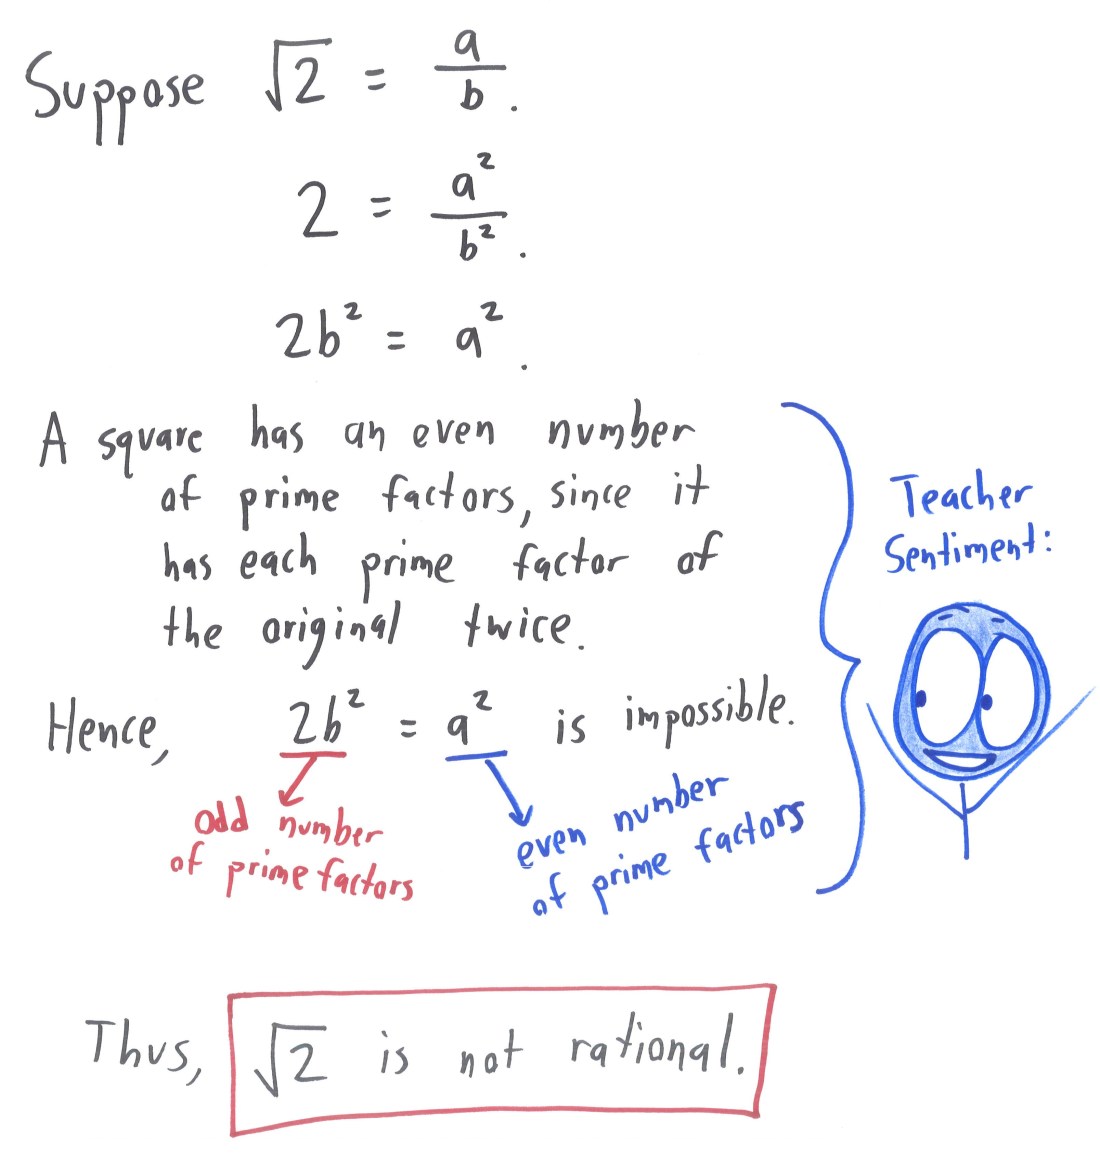 Suppose √2 = a/b.
2 = a²/b².
2b² = a².
A square has an even number
of prime factors, since it
has each prime factor of
the original twice.
Teacher
Sentiment:
Hence, 2b² = a² is impossible.
odd number
of prime factors
even number
of prime factors
Thus, √2 is not rational.